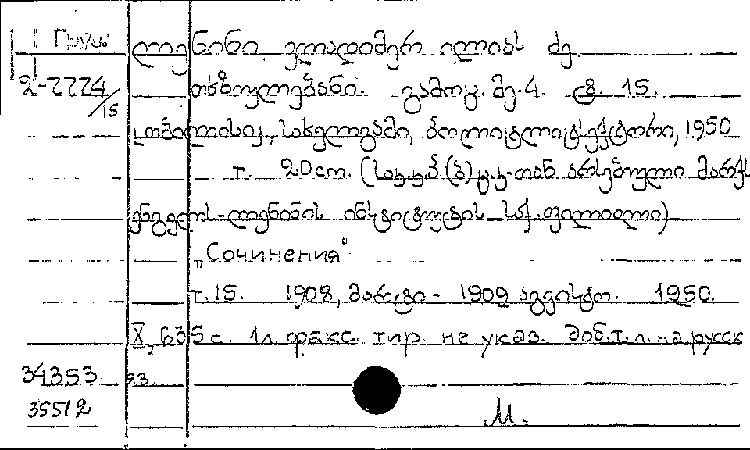 Груз. ლენინი ვლადიმერ ილიას ძე
2-7774/15 თხზულებანი. გამოც. მე-4. ტ. 15.
თბილისი, სახელგამი, პოლიტლიტსექტორი, 1950
т. 20 cm. (საკ.კ.პ.(ბ)ც.კ-თან არსებული მარქს
ენგელს-ლენინის ინსტიტუტის საქ. ფილიალი)
„Сочинения“
т. 15. 1908, მარტი - 1909 აგვისტო. 1950.
X, 635 с. 1 л. факс. тир. не указ. Тит. л. на русск
34353 яз.
35512 М.